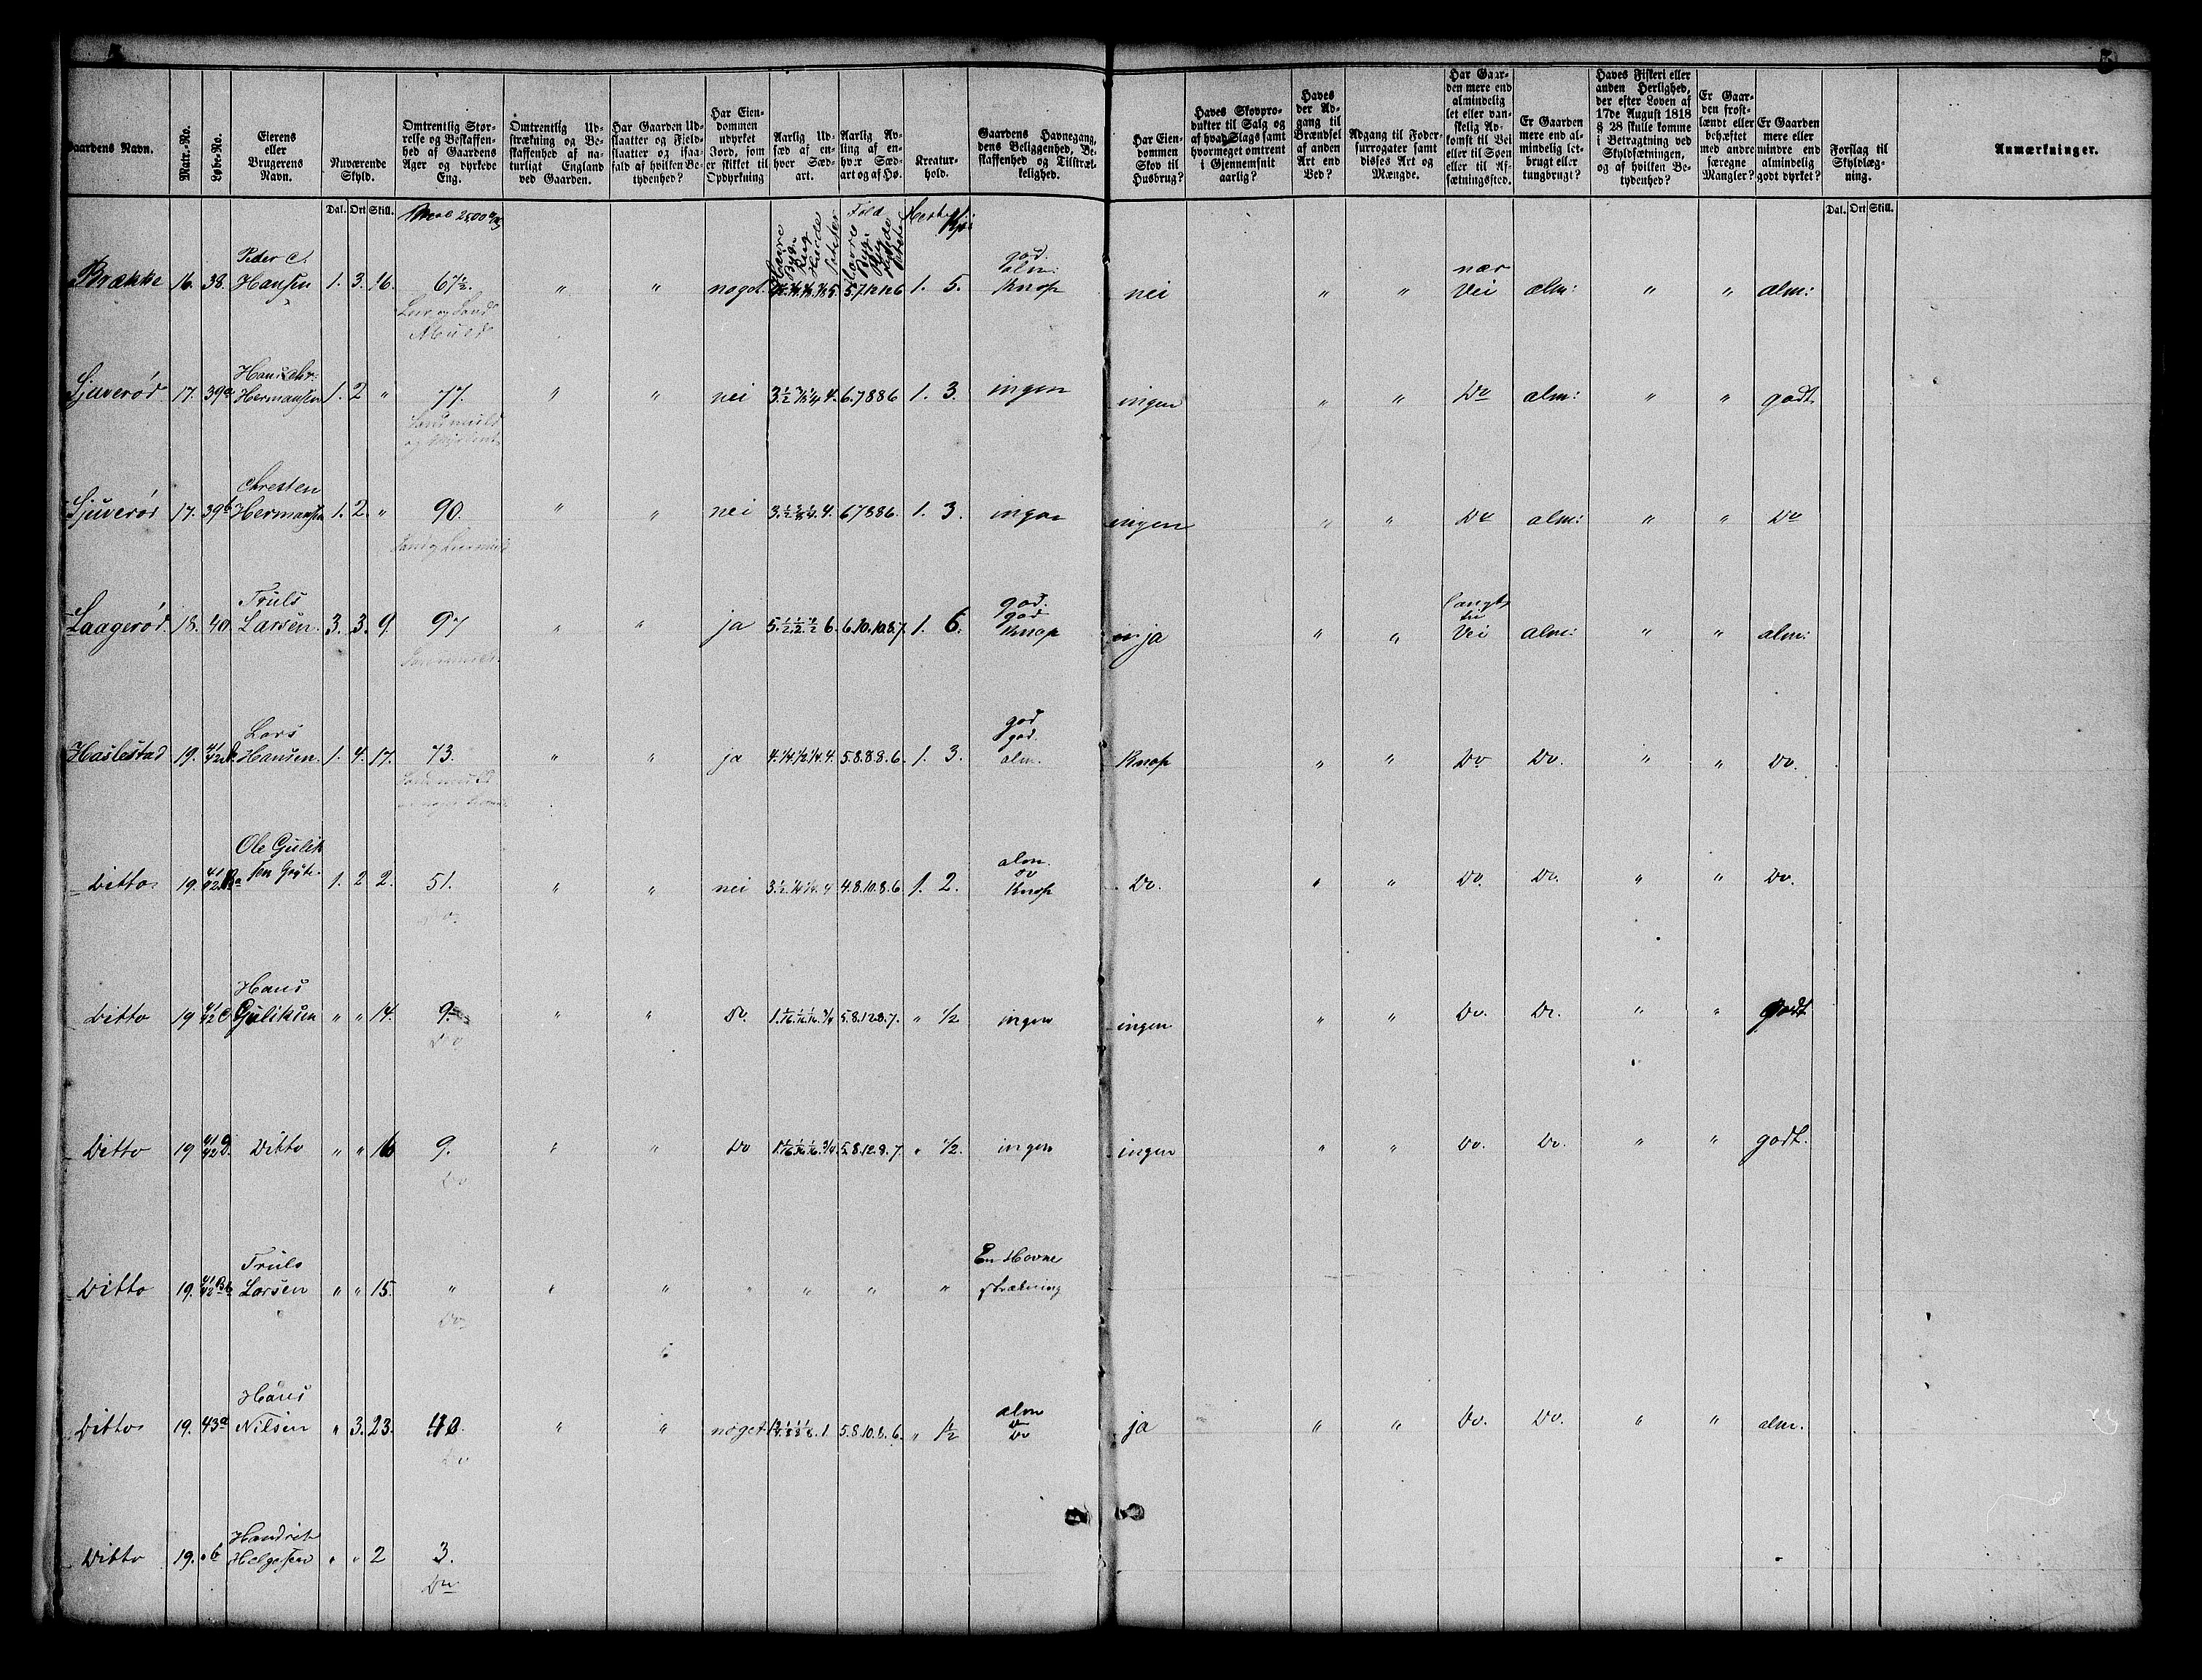 Gaardens Navn. Matr.-No. Løbe-No. Eierens eller Brugerens Navn. Nuværende Skyld. Omtrentlig Størrelse og Beskaffenhed af Gaardens Ager og dyrkede Eng. Omtrentlig Udstrækning og Beskaffenhed af naturligt England ved Gaarden. Har Gaarden Udslaatter og Fjeldslaatter og ifaafald af hvilken Betydenhed? Har Eiendommen udyrket Jord, som er skikket til Opdyrkning Aarlig Udsæd af enhver Sædart. Aarlig Avling af enhver Sædart og af Hø. Kreaturhold. Gaardens Havnegang, dens Beliggenhed, Beskaffenhed og Tilstrækkelighed. Har Eiendommen Skov til Husbrug? Haves Skovprodukter til Salg og af hvad Slags samt hvormeget omtrent i Gjennemsnit aarlig? Haves der Adgang til Brændsel af anden Art end Ved? Adgang til Fodersurrogater samt disses Art og Mængde. Har Gaarden mere end almindelig let eller vanskelig Adkomst til Vei eller til Søen eller til Afsætningssted. Er Gaarden mere end almindelig letbrugt eller tungbrugt? Haves Fiskeri eller anden Herlighed, der efter Loven af 17de August 1818 § 28 skulle komme i Betragtning ved Skyldsætningen, og af hvilken Betydenhed? Er Gaarden frostlændt eller behæftet med andre særegne Mangler? Er Gaarden mere eller mindre end almindelig godt dyrket? Forslag til Skyldlægning. Anmærkninger.
Dal. Ort Skill. Maal 2500 Fold Heste Dal. Ort Skill.
Havre Byg Rug Hvede Poteter Havre Byg Rug Hvede Poteter
Brække 16. 38. Peder C. Hansen 1. 3. 16. 67½. " " noget 5.7.12.12.6 1. 5. god. alm: Knap nei " " nær Vei alm: " " alm:
Leer og Sand Muld
Sjuverød 17. 39a Hans Chr: Hermansen 1. 2 " 77. " " nei 6.7886 1. 3. ingen ingen " " Do alm: " " godt.
Sandmuld
Sjuverød 17. 39b Chresten Hermansen 1. 2. " 90. " " nei 67886. 1. 3. ingen ingen " " Do alm: " " Do
Laagerød. 18. 40 Truls Larsen. 3. 3. 9. 97 " " ja 6.10.10.8.7. 1. 6. god. god Knap ja " " langt til Vei alm: " " alm:
Haslestad 19. 41/42 Lars Hansen. 1. 4. 17. 73. " " ja 4.¼.½.¼.4. 5.8.8.8.6. 1. 3. god god. alm. Knap " " Do Do. " " Do.
Sandmuld
Ditto 19. 41/42 Ba Ole Gulik 1. 2 2. 51. " " nei 4.8.10.8.6 1. 2. alm. Do Knap Do. " " Do. Do. " " Do.
Do.
Ditto 19 41/42 C Hans Guliksen " " 14. 9. " " Do. 5.8.12.8.7. " ½ ingen ingen " " Do. Do. " " godt
Do
Ditto 19 41/42 D. Ditto " " 16 9. " " Do 5.8.12.8.7 " ½. ingen ingen " " Do. Do. " " godt.
Do
Ditto 19. 41/42 Bb Truls Larsen " " 15. " " " " " " " En Havne strækning
Do
Ditto 19. 43a Hans Nilsen " 3. 23. 40. " " noget 5.8.10.8.6. " ½ alm Do ja " " Do. Do. " " alm.
Do
Ditto 19. " b Helgesen " " 2 3.
Do